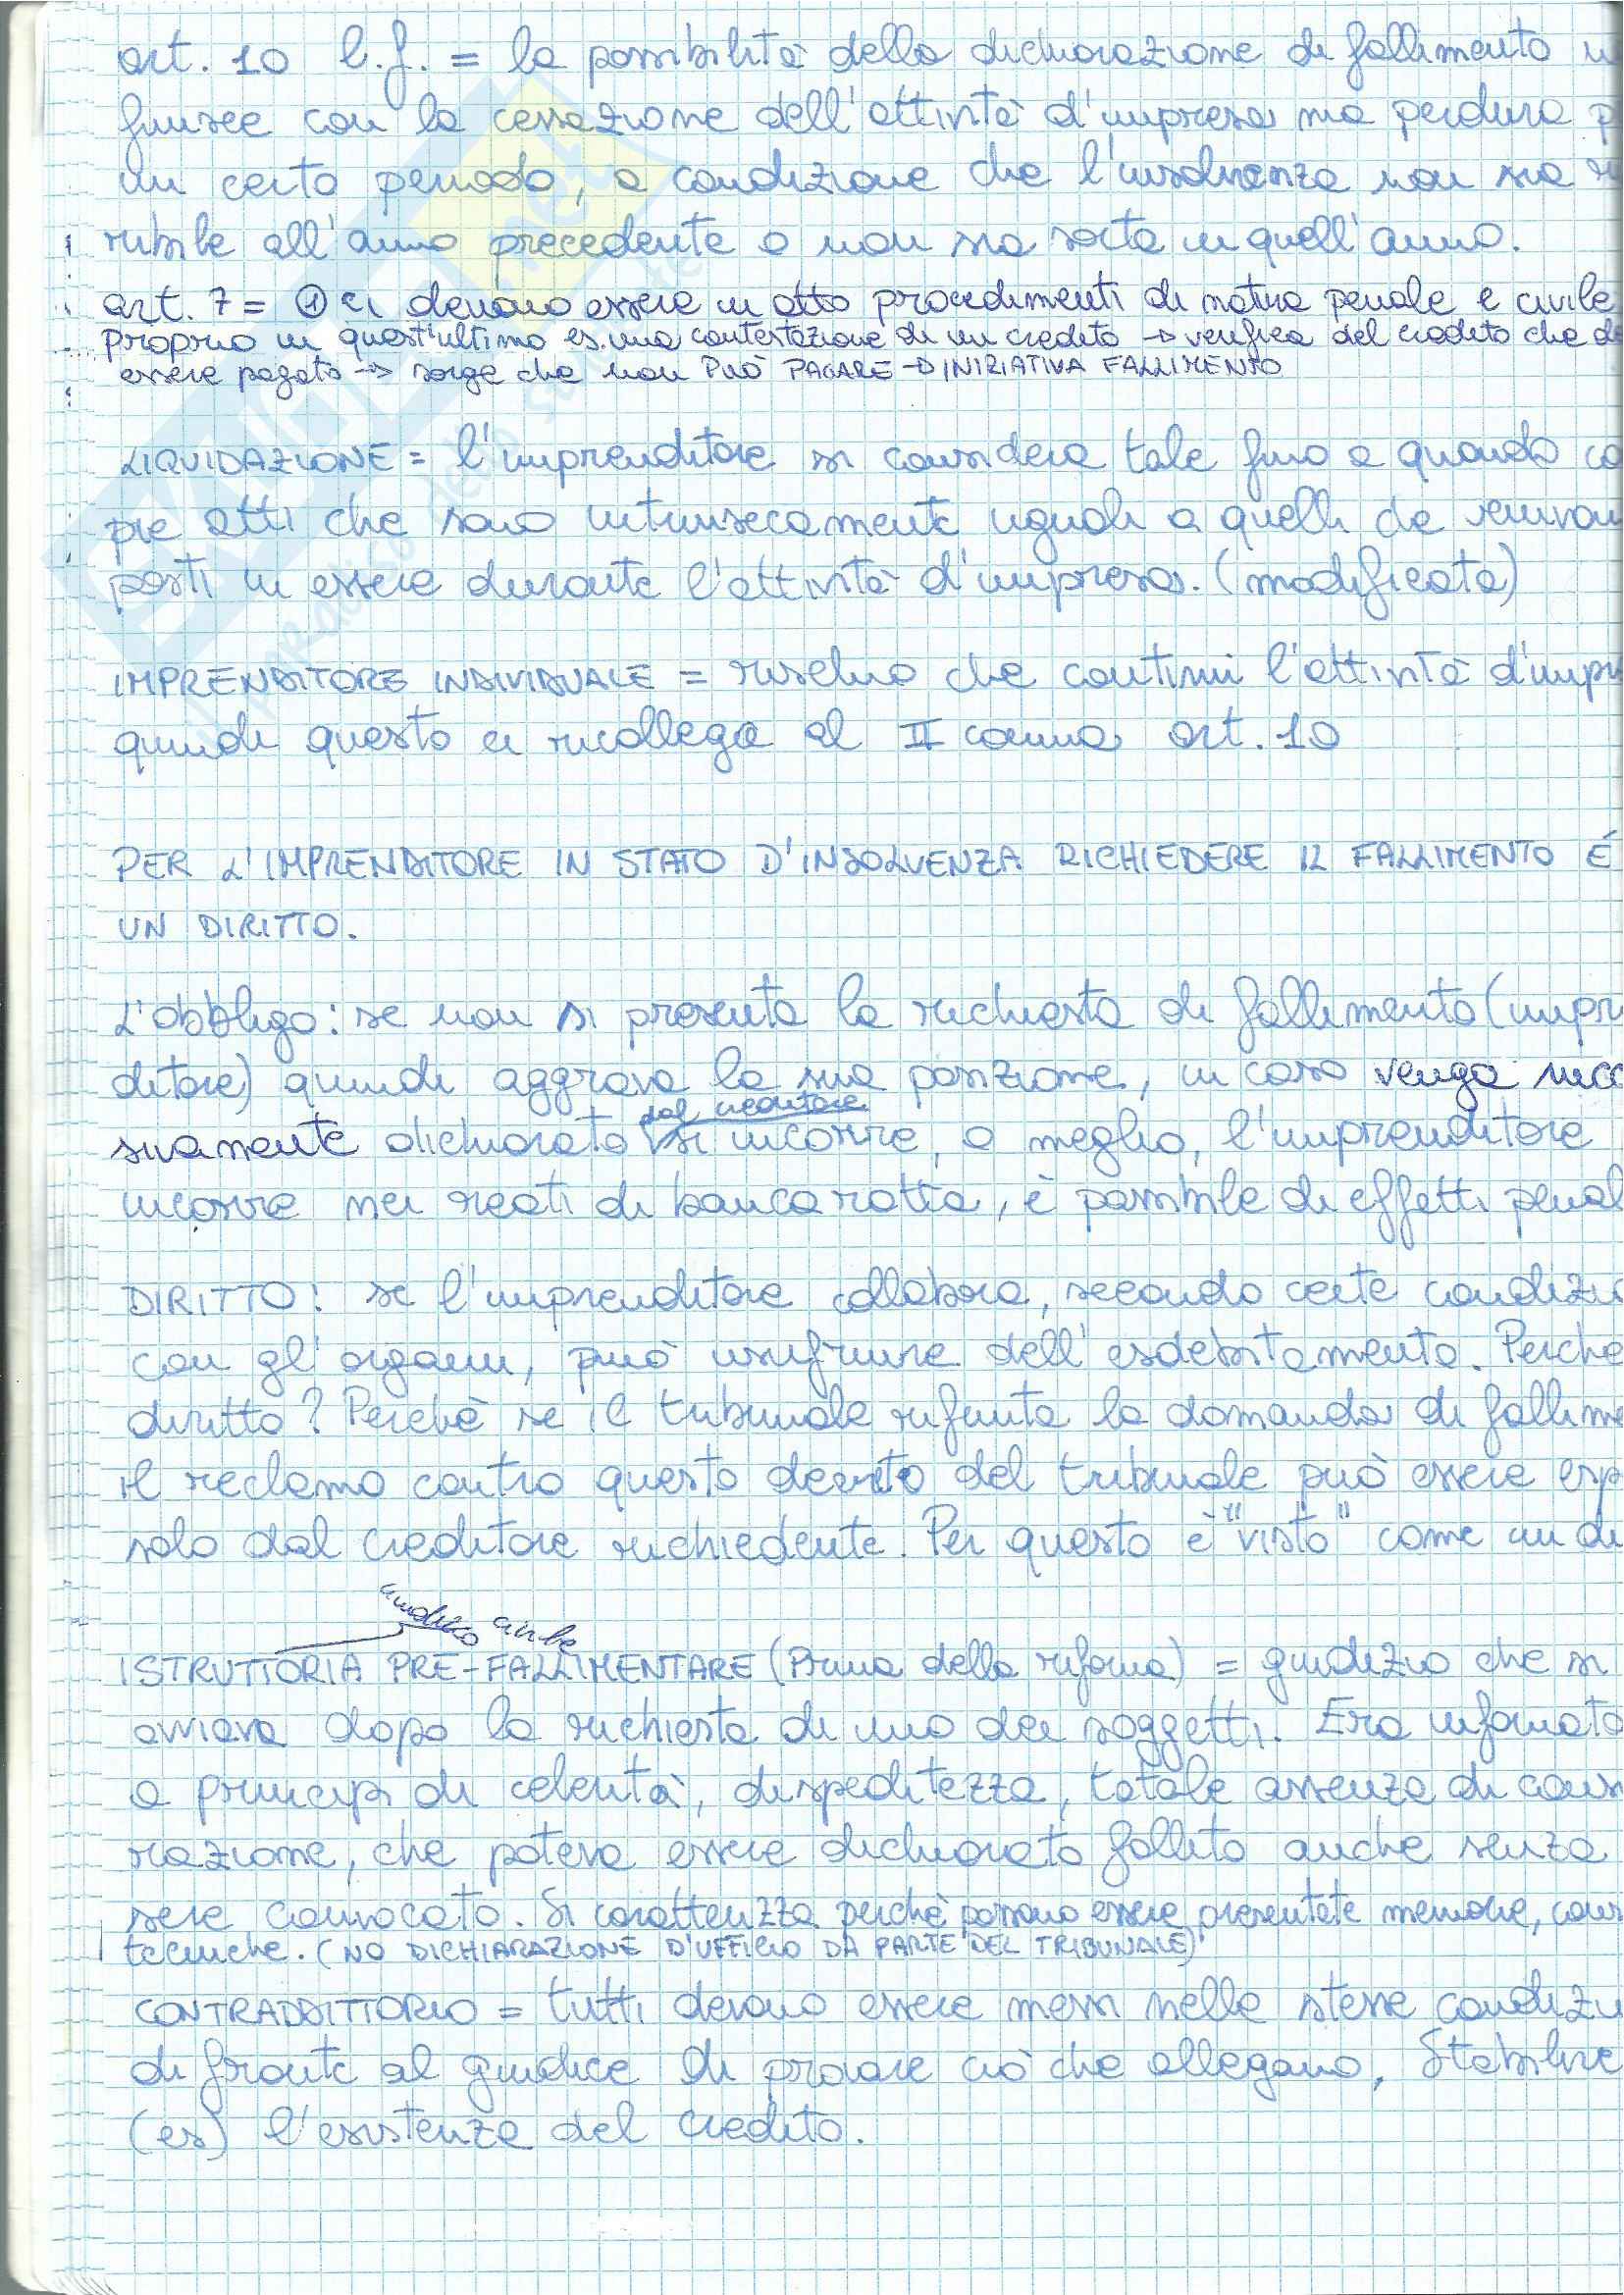 art. 10 l.f. = la possibilità della dichiarazione di fallimento
finisce con la cessazione dell'attività d'impresa ma perdura p
un certo periodo, a condizione che l'insolvenza non sia
ribile all'anno precedente o non sia sorta in quell'anno.
art. 7 = ① ci devono essere in atto procedimenti di natura penale e civile
proprio in quest'ultimo es. una contestazione di un credito → verifica del credito che d
essere pagato → sorge che non PUÒ PAGARE → INIZIATIVA FALLIMENTO
LIQUIDAZIONE = l'imprenditore si considera tale fino a quando co
pie atti che sono intrinsecamente uguali a quelli che venivan
posti in essere durante l'attività d'impresa. (modificata)
IMPRENDITORE INDIVIDUALE = rischio che continui l'attività d'impr
quindi questo ci ricollega al II comma art. 10
PER L'IMPRENDITORE IN STATO D'INSOLVENZA RICHIEDERE IL FALLIMENTO É
UN DIRITTO.
L'obbligo: se non si presenta la richiesta di fallimento (impr
ditore) quindi aggrava la sua posizione, in caso venga succ
sivamente dichiarato dal creditore si incorre, o meglio, l'imprenditore
incorre nei reati di banca rotta, è passibile di effetti penal
DIRITTO: se l'imprenditore collabora, secondo certe condizi
con gl'organi, può usufruire dell'esdebitamento. Perchè
diritto? Perchè se il tribunale rifiuta la domanda di fallime
il reclamo contro questo decreto del tribunale può essere esp
solo dal creditore richiedente. Per questo è "visto" come un di
giudizio civile
ISTRUTTORIA PRE-FALLIMENTARE (Prima della riforma) = giudizio che si
avviava dopo la richiesta di uno dei soggetti. Era informato
a principi di celerità, dispeditezza, totale assenza di cons
razione, che poteva essere dichiarato fallito anche senza
sere convocato. Si caratterizza perchè possono essere presentate memorie, cons
tecniche. (NO DICHIARAZIONE D'UFFICIO DA PARTE DEL TRIBUNALE)
CONTRADDITTORIO = tutti devono essere messi nelle stesse condizi
di fronte al giudice di provare ciò che allegano, Stabilire
(es) l'esistenza del credito.